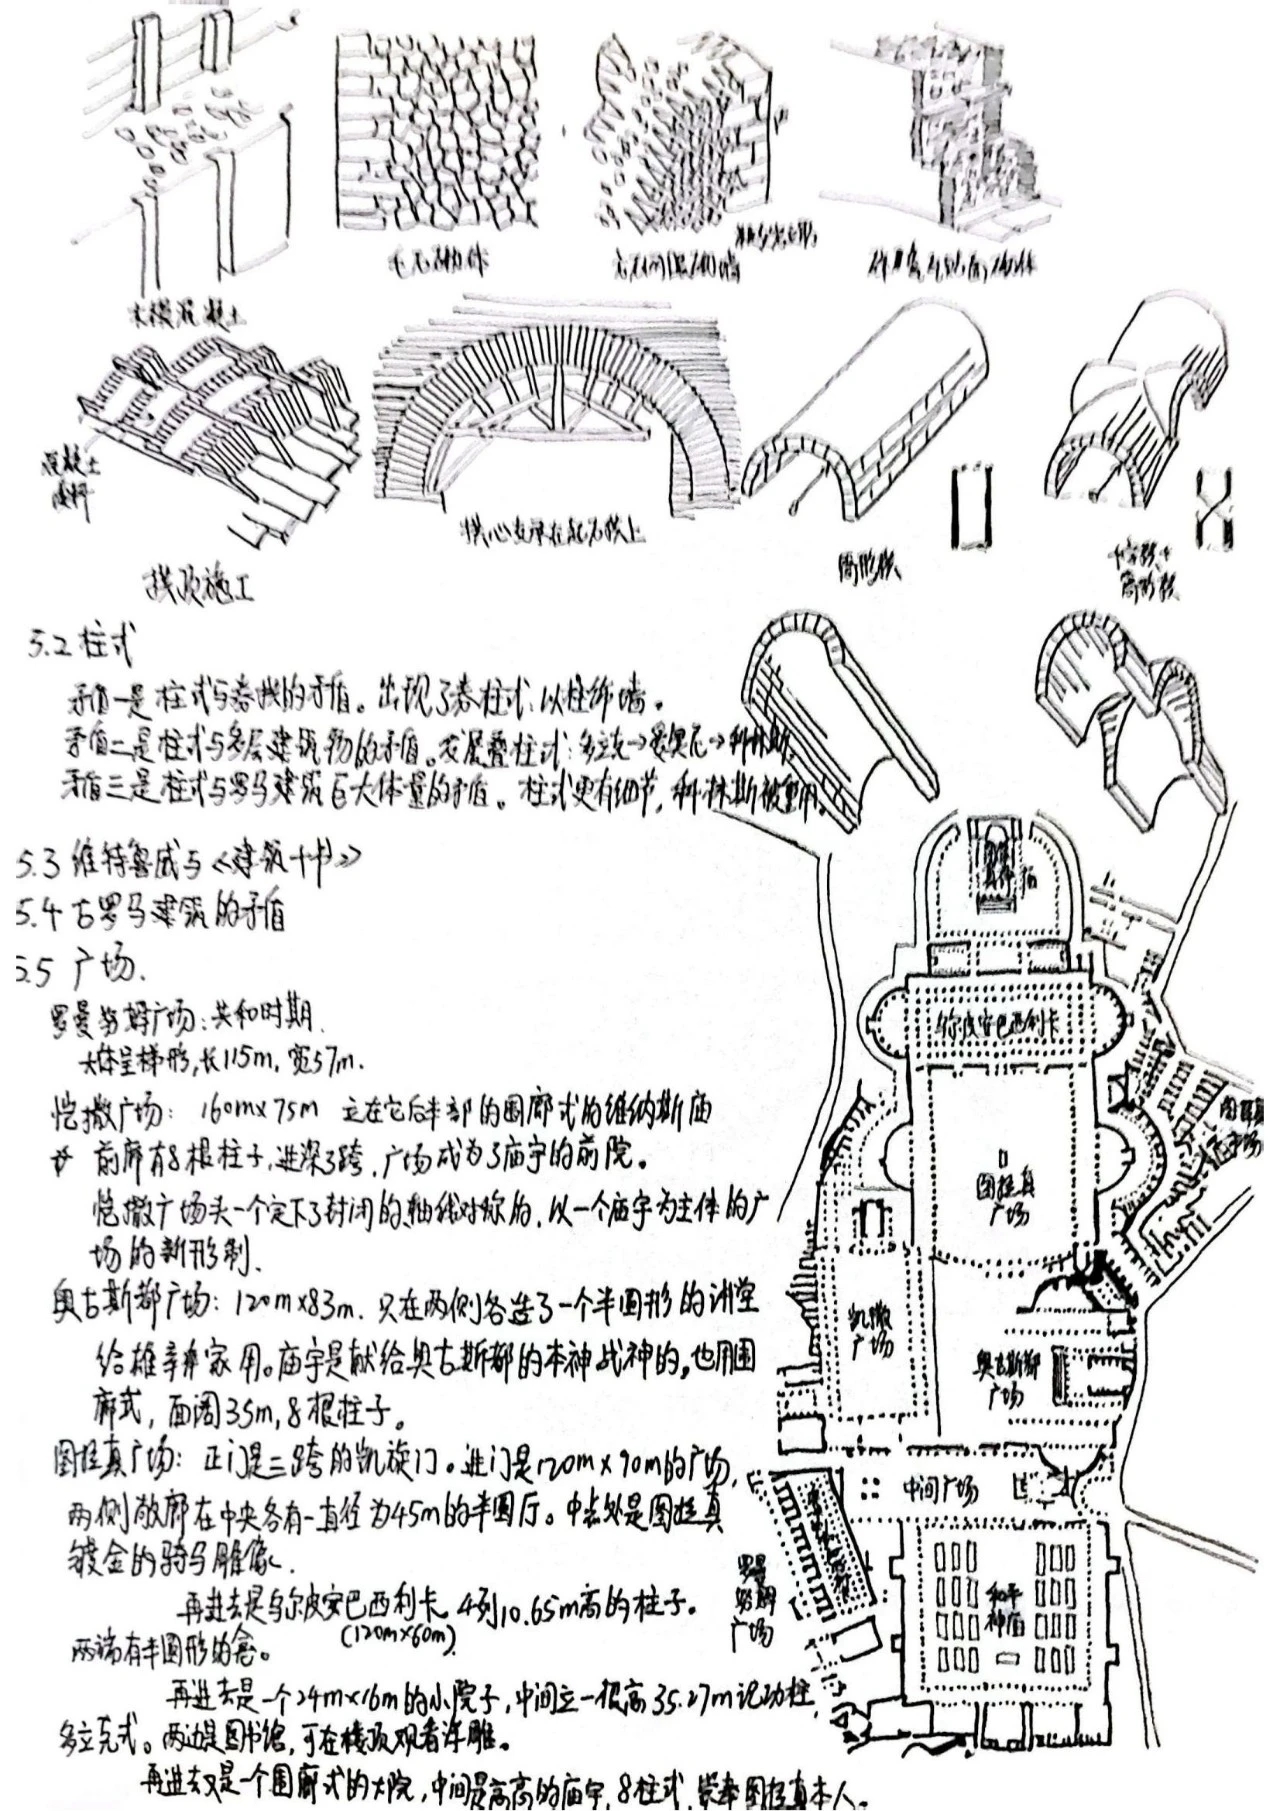 毛石砌体
木模混凝土
混凝土
拱顶施工
筒形拱
十字拱+
筒形拱
5.2 柱式
矛盾一是柱式与券拱的矛盾。出现了券柱式,以柱饰墙。
矛盾二是柱式与多层建筑物的矛盾。发展叠柱式:多立克→爱奥尼→科林斯
矛盾三是柱式与罗马建筑巨大体量的矛盾。柱式更有细节,科林斯被重用。
5.3 维特鲁威与《建筑十书》
5.4 古罗马建筑的矛盾
5.5 广场.
罗曼努姆广场:共和时期.
大体呈梯形,长115m,宽57m.
恺撒广场: 160m×75m 立在它后半部的围廊式的维纳斯庙
前廊有8根柱子,进深3跨,广场成为了庙宇的前院。
恺撒广场头一个定下了封闭的,轴线对称的,以一个庙宇为主体的广
场的新形制.
奥古斯都广场: 120m×83m. 只在两侧各造了一个半圆形的讲堂
给雄辩家用。庙宇是献给奥古斯都的本神战神的,也用围
廊式,面阔35m,8根柱子。
图拉真广场: 正门是三跨的凯旋门。进门是120m×90m的广场,
两侧敞廊在中央各有一直径为45m的半圆厅。中央处是图拉真
镀金的骑马雕像.
再进去是乌尔皮安巴西利卡 4列10.65m高的柱子。
(120m×60m)
两端有半圆形的龛。
再进去是一个24m×16m的小院子,中间立一根高35.27m记功柱
多立克式。两边是图书馆,可在楼顶观看浮雕。
再进去又是一个围廊式的大院,中间是高高的庙宇,8柱式,崇奉图拉真本人。
乌尔皮安巴西利卡
图拉真
广场
凯撒
广场
奥古斯都
广场
中间广场
和平
神庙
罗曼
努姆
广场